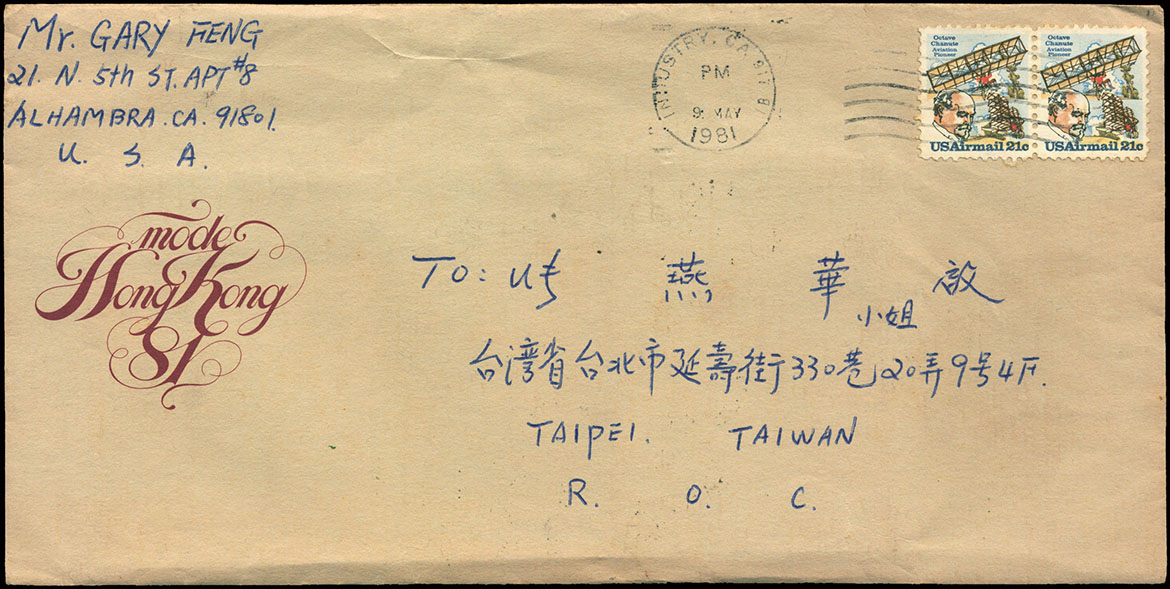 Mr. GARY FENG
21. N. 5th ST. APT #8
ALHAMBRA. CA. 91801.
U. S. A.
INDUSTRY, CA 917
PM
9 MAY
1981
Octave
Chanute
Aviation
Pioneer
USAirmail 21c
Octave
Chanute
Aviation
Pioneer
USAirmail 21c
mode
Hong Kong
81
TO: 燕 華 小姐 啟
台湾省台北市延壽街330巷20弄9号4F.
TAIPEI. TAIWAN
R. O. C.